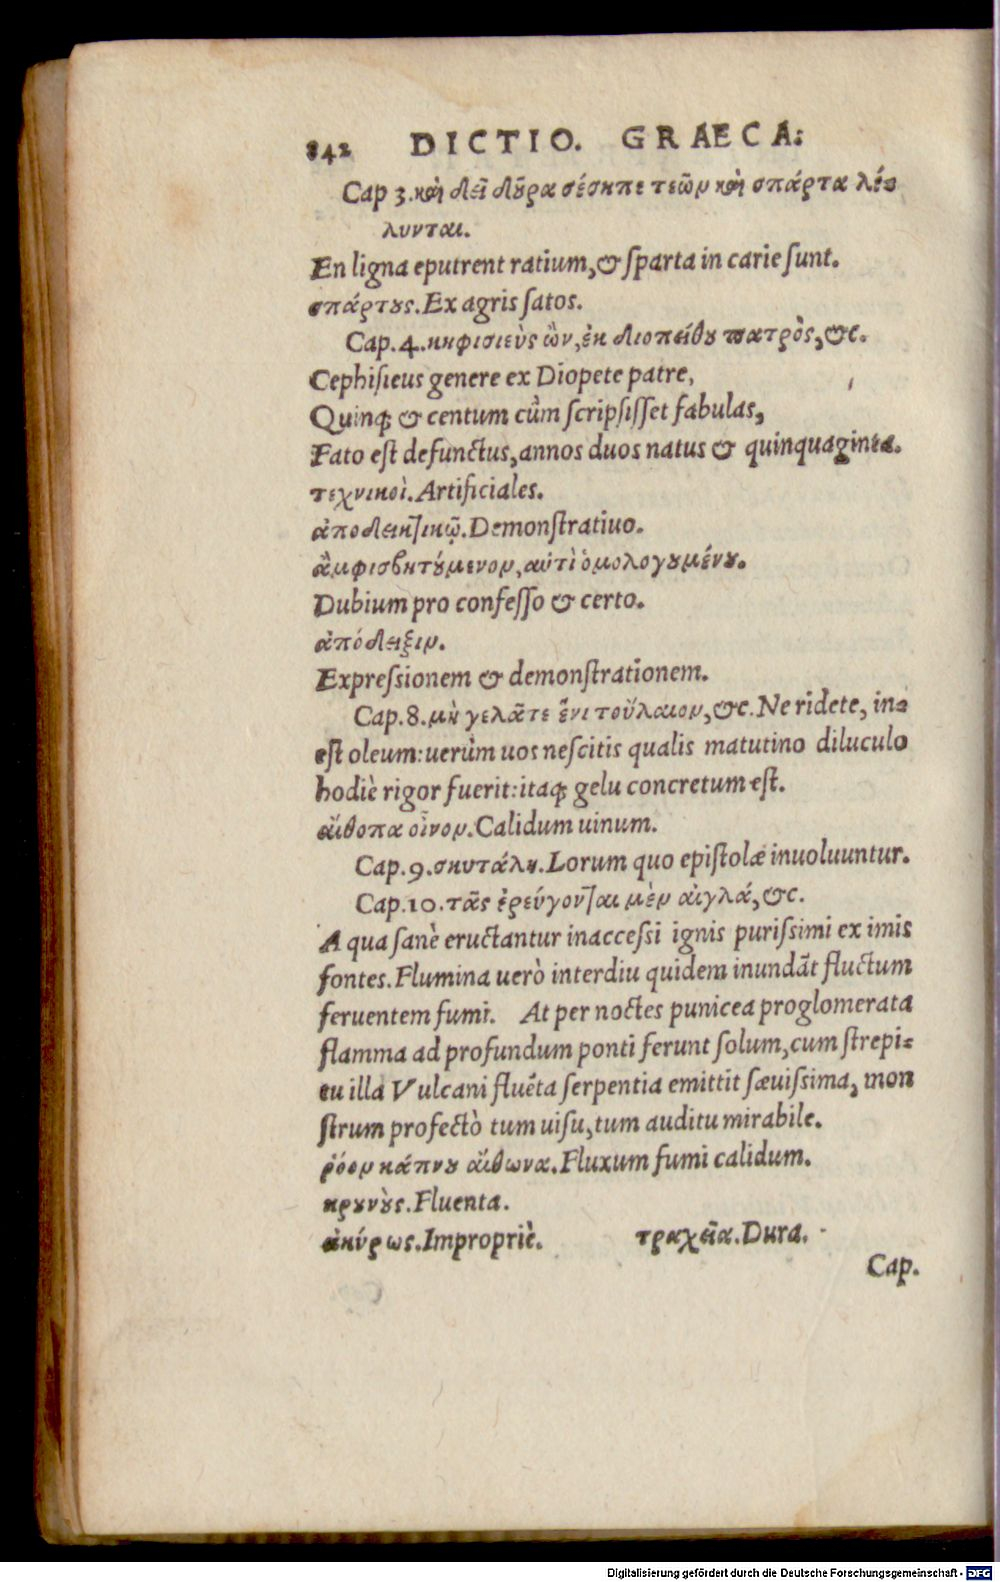 842 DICTIO. GRAECA:
Cap 3. καὶ δεῖ δοῦρα σέσηπε τεῶν καὶ σπάρτα λέ-
λυνται.
En ligna eputrent ratium, & sparta in carie sunt.
σπάρτους. Ex agris satos.
Cap. 4. κηφισιεὺς ὢν, ἐκ διοπείθου πατρὸς, &c.
Cephisieus genere ex Diopete patre,
Quinq; & centum cùm scripsisset fabulas,
Fato est defunctus, annos duos natus & quinquaginta.
τεχνικοὶ. Artificiales.
ἀποδεικτικῷ. Demonstratiuo.
ἀμφισβητούμενον, αὐτὶ ὁμολογουμένου.
Dubium pro confesso & certo.
ἀπόδειξιν.
Expressionem & demonstrationem.
Cap. 8. μὴ γελᾶτε ἔνι τοὔλαιον, &c. Ne ridete, in-
est oleum: uerùm uos nescitis qualis matutino diluculo
hodiè rigor fuerit: itaq; gelu concretum est.
αἴθοπα οἶνον. Calidum uinum.
Cap. 9. σκυτάλη. Lorum quo epistolæ inuoluuntur.
Cap. 10. τᾶς ἐρεύγονται μὲν αἰγλά, &c.
A qua sanè eructantur inaccessi ignis purissimi ex imis
fontes. Flumina uerò interdiu quidem inundāt fluctum
feruentem fumi. At per noctes punicea proglomerata
flamma ad profundum ponti ferunt solum, cum strepi-
tu illa Vulcani fluēta serpentia emittit sæuissima, mon
strum profectò tum uisu, tum auditu mirabile.
ῥόον κάπνου αἴθωνα. Fluxum fumi calidum.
κρουνοὺς. Fluenta.
ἀκύρως. Impropriè. τραχεῖα. Dura.
Cap.
Digitalisierung gefördert durch die Deutsche Forschungsgemeinschaft - DFG